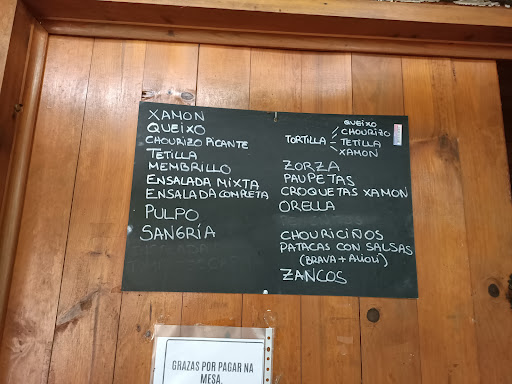 XAMON
QUEIXO
CHOURIZO PICANTE
TETILLA
MEMBRILLO
ENSALADA MIXTA
ENSALADA COMPLETA
PULPO
SANGRÍA
QUEIXO
CHOURIZO
TORTILLA TETILLA
XAMON
ZORZA
PAUPETAS
CROQUETAS XAMON
ORELLA
CHOURICIÑOS
PATACAS CON SALSAS
(BRAVA + ALIOLI)
ZANCOS
GRAZAS POR PAGAR NA
MESA.